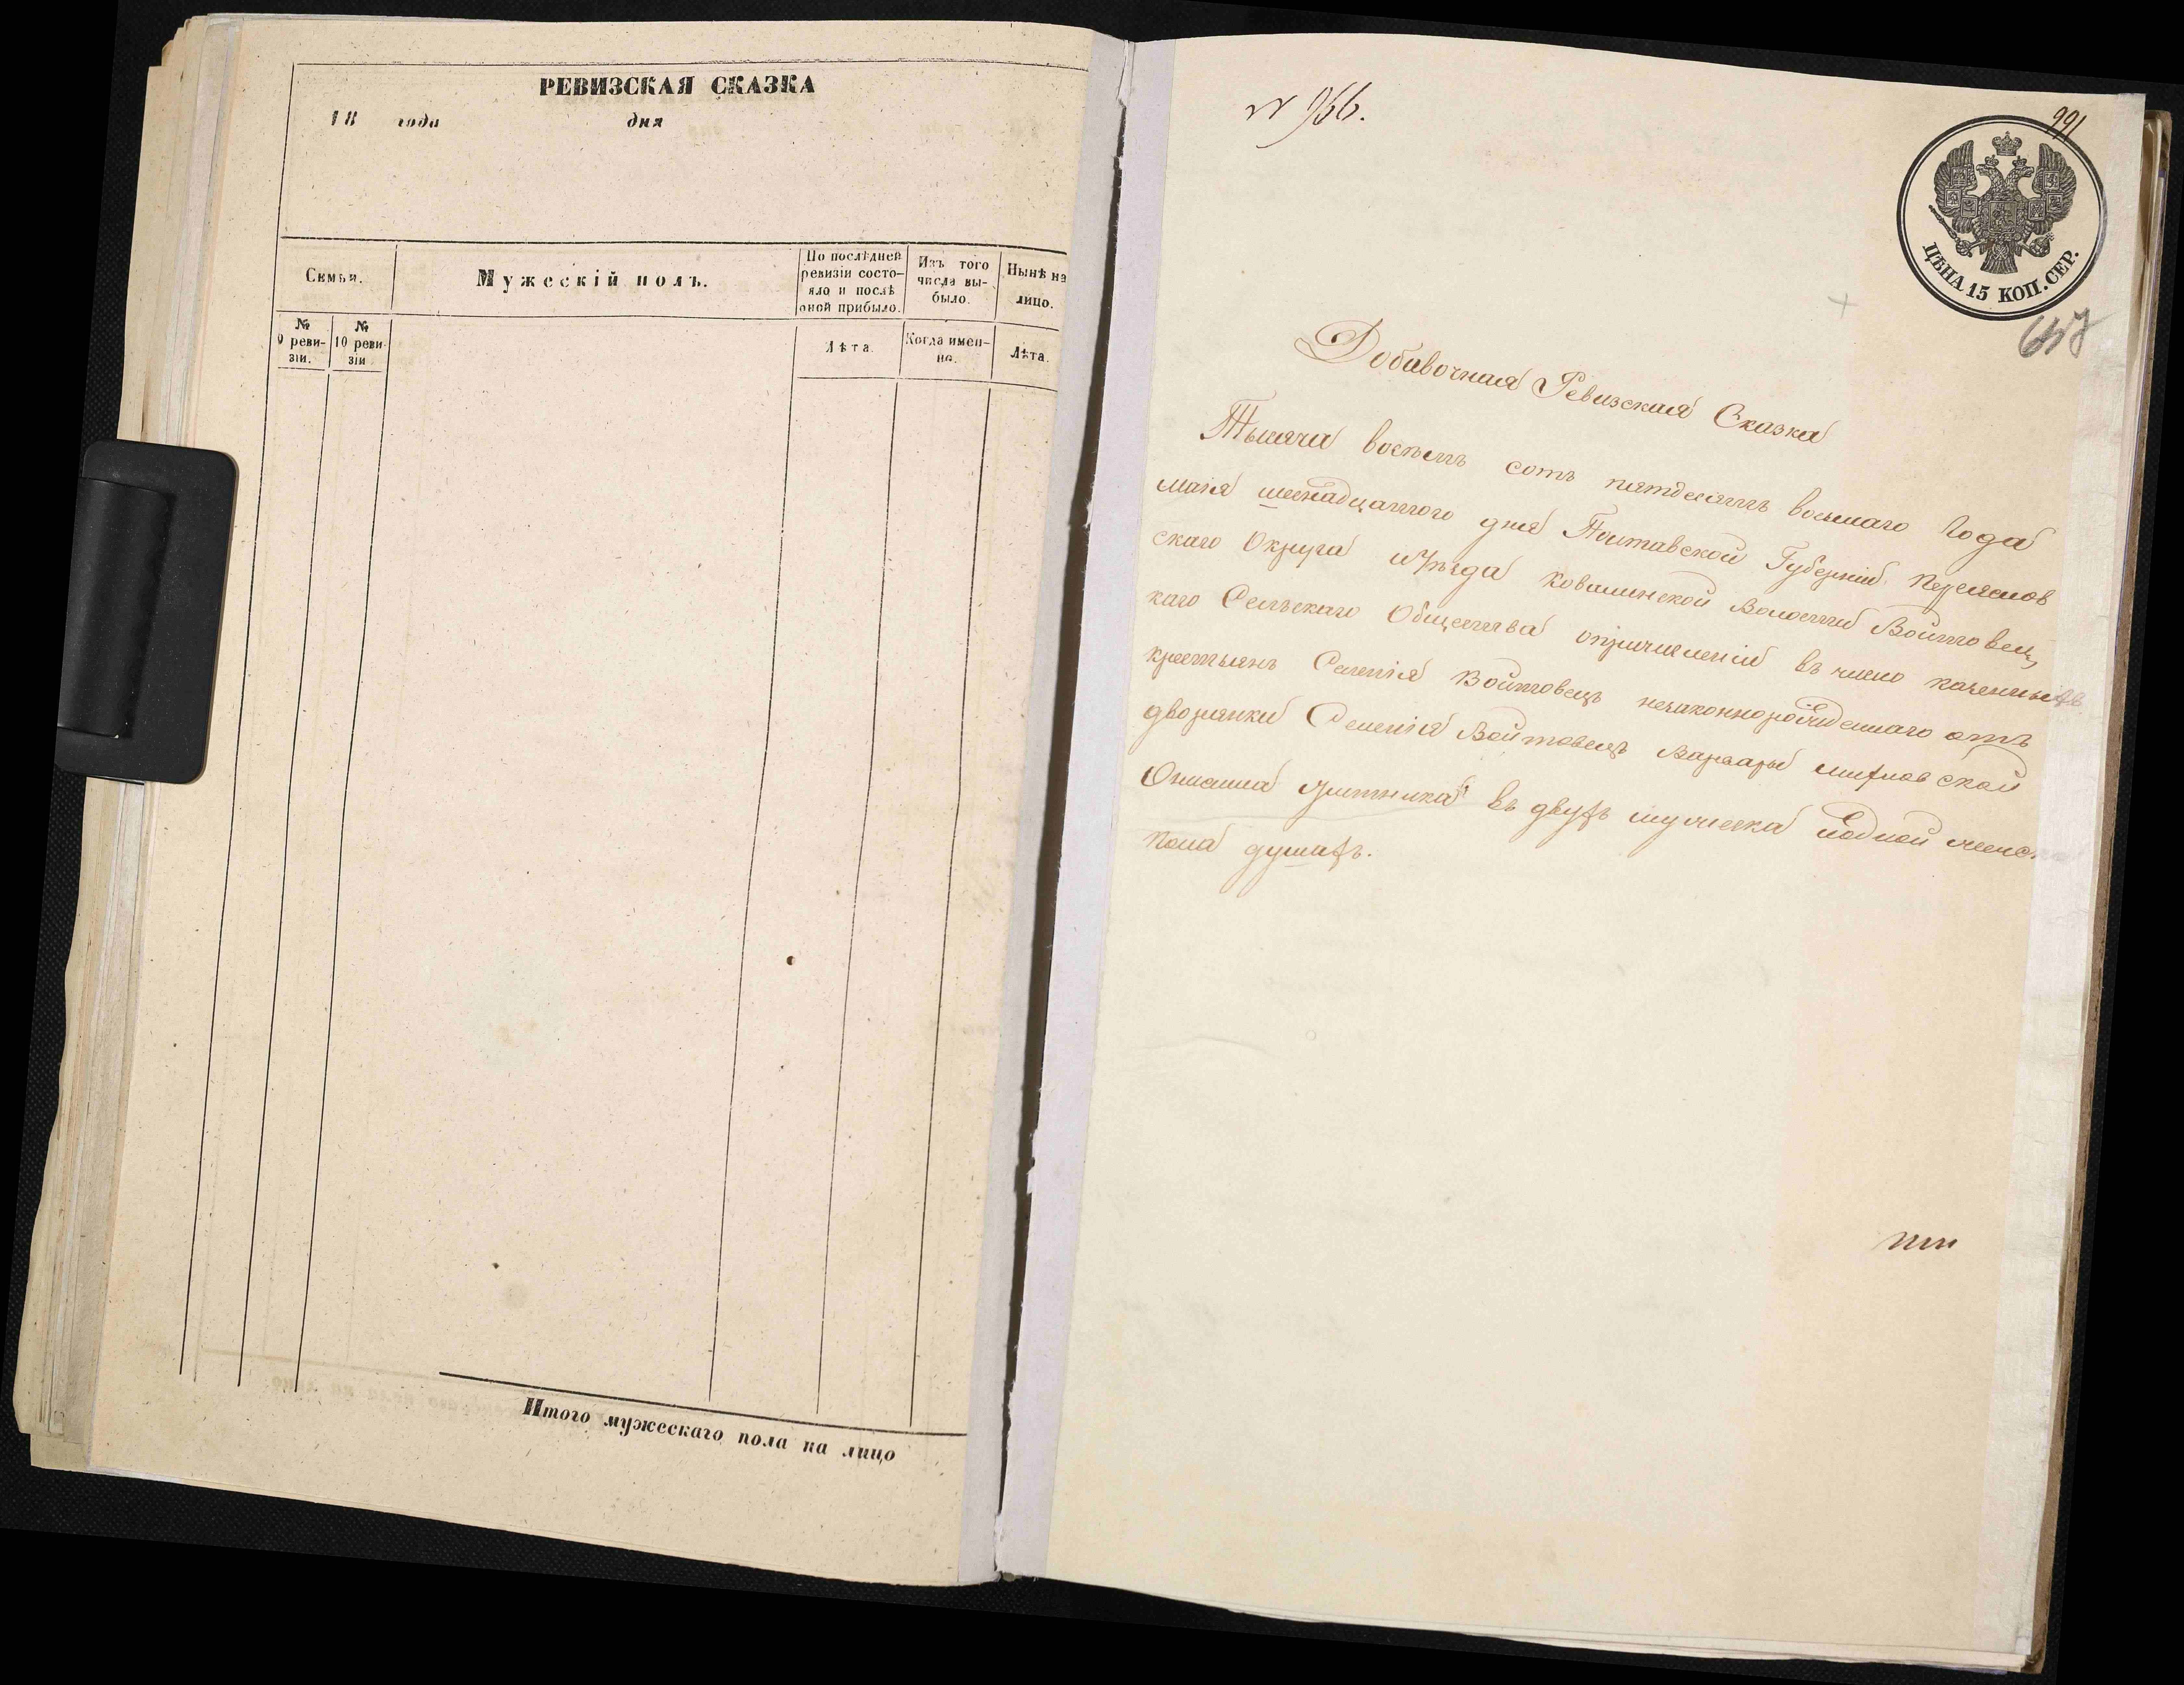 РЕВИЗСКАЯ СКАЗКА
18 года дня
Семьи.
Мужескій полъ.
По послѣдней
ревизіи состо-
яло и послѣ
оной прибыло.
Изъ того
числа вы-
было.
Нынѣ на
лицо.
№
9 реви-
зіи.
№
10 реви-
зіи
Лѣта.
Когда имен-
но.
Лѣта.
Итого мужескаго пола на лицо
№ 956.
991
ЦѢНА 15 КОП. СЕР.
657
Добавочная Ревизская Сказка
Тысяча восемь сотъ пятдесятъ восьмаго Года
маія шеснадцатого дня Полтавской Губерніи Переяслов
скаго Округа и Уѣзда Ковалинской Волости Войтовец
каго Сельскаго Общества опричисленіи въ число казенныхъ
крестьянъ Селенія Войтовецъ незаконнорожденнаго отъ
дворянки Селенія Войтовецъ Варвары
въ двухъ мужеска іодной женс.
пола душахъ.